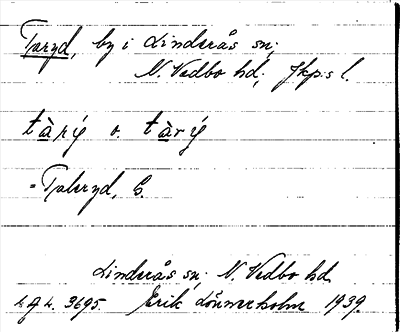 Taryd, by i Linderås sn;
N. Vedbo hd; Jkp:s l.
tàrý o. tàrý
=Taleryd, G.
Linderås sn; N. Vedbo hd
3695. Erik Lönnerholm 1939.